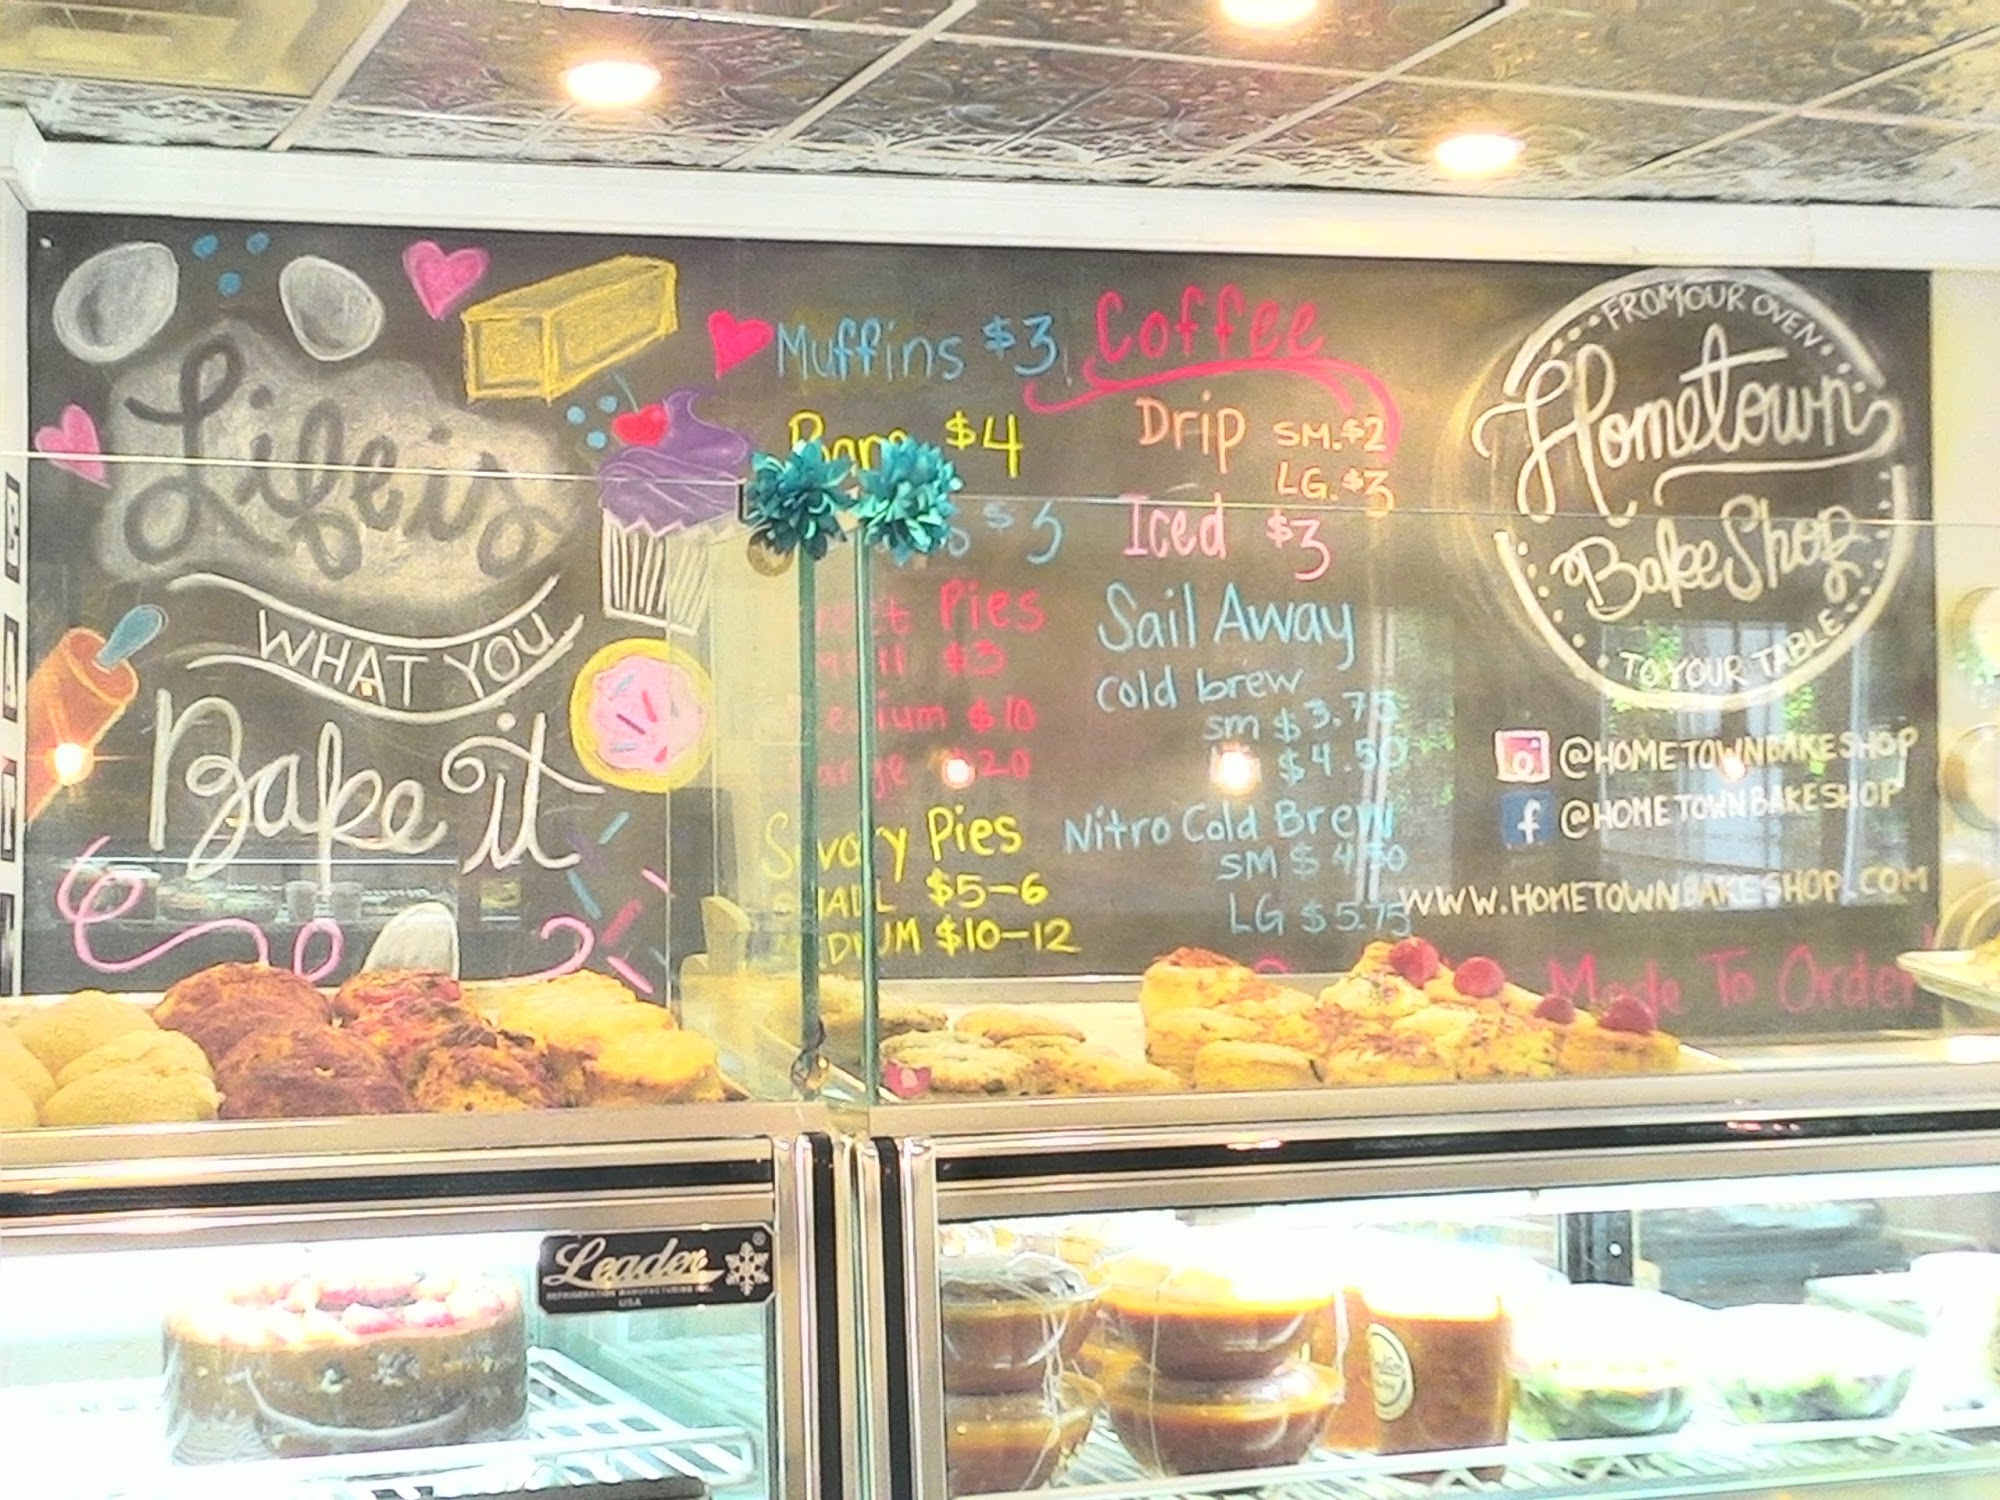 Life is
WHAT YOU
Bake it
Muffins $3
$4
$3
Pies
$3
Medium $10
Large $20
Savory Pies
SMALL $5-6
MEDIUM $10-12
Coffee
Drip SM. $2
LG. $3
Iced $3
Sail Away
cold brew
sm $3.75
$4.50
Nitro Cold Brew
SM $4.50
LG $5.75
FROM OUR OVEN
Hometown
Bake Shop
TO YOUR TABLE
@HOMETOWNBAKESHOP
f @HOMETOWNBAKESHOP
WWW.HOMETOWNBAKESHOP.COM
Made To Order
Leader
REFRIGERATION MANUFACTURING INC.
USA